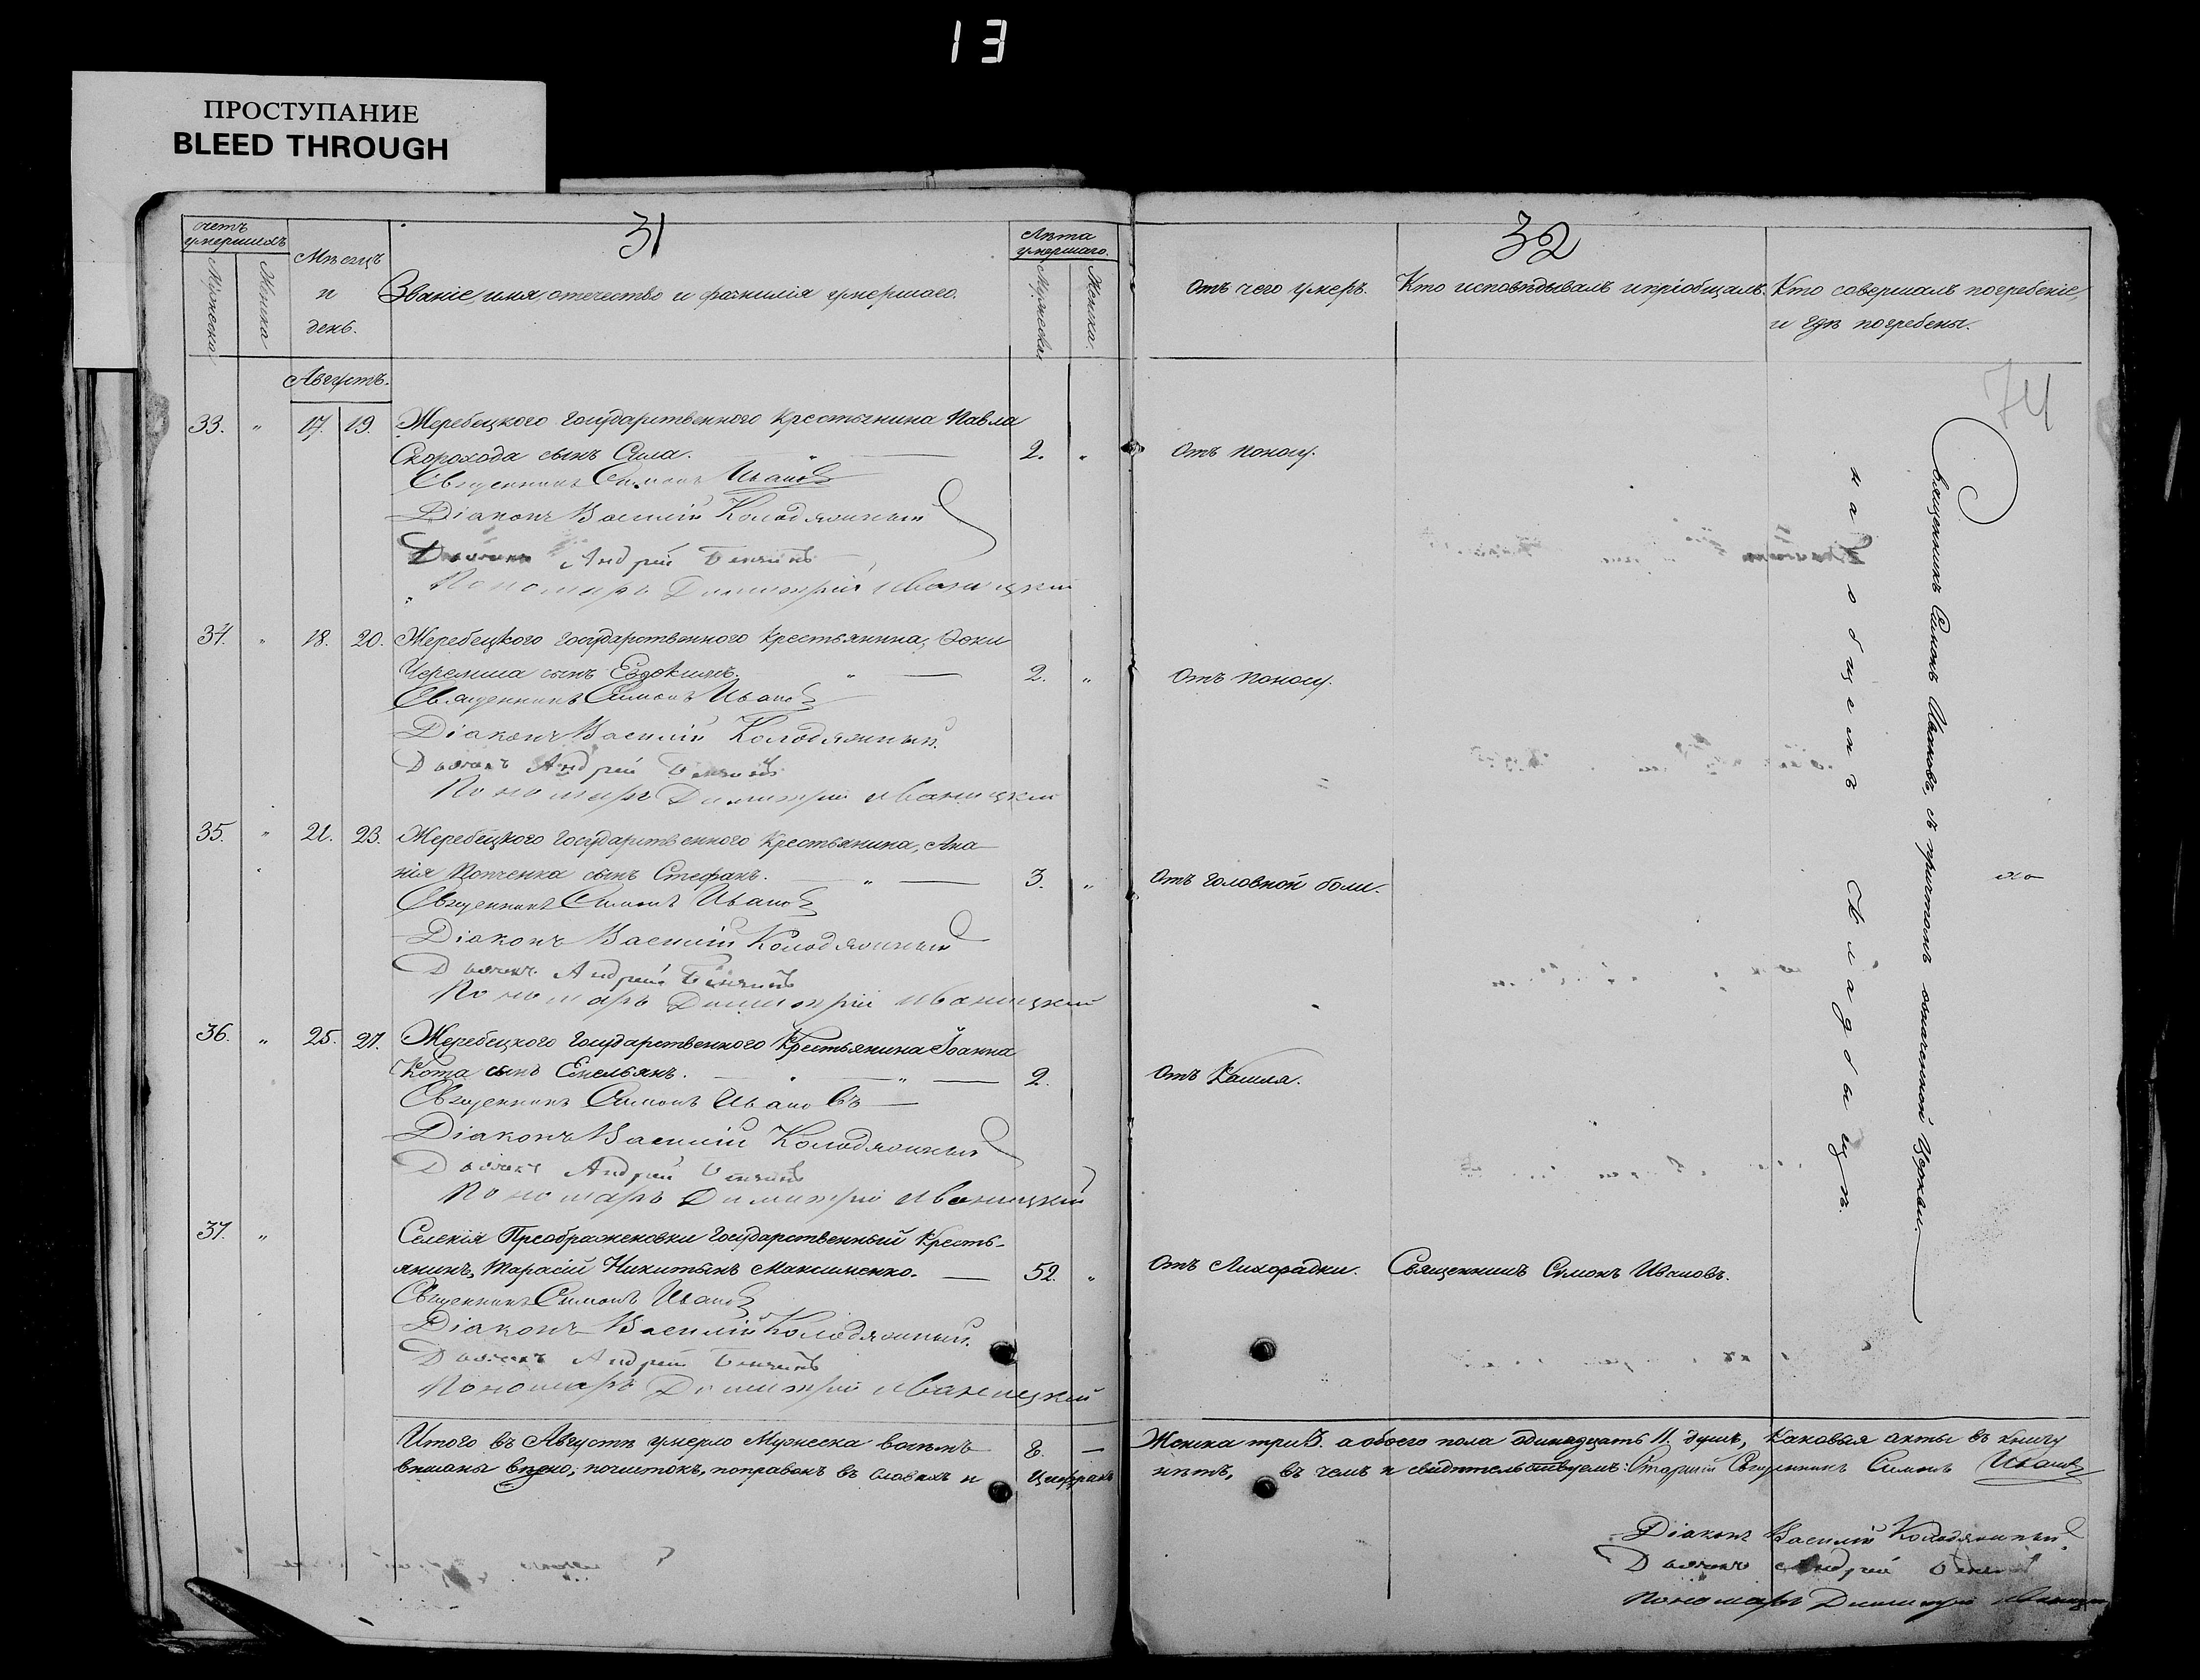 13
ПРОСТУПАНИЕ
BLEED THROUGH
31
счетъ умершихъ
Мужеска
Женска
Мѣсяцъ и день.
Званіе, имя, отечество и фамилія умершаго.
Лѣта умершаго.
Мужеска
Женска
Августъ.
33. " 17. 19. Жеребецкого государственного крестьянина Павла
Скорохода сынъ Сила. 2. "
Священникъ Симонъ Ивановъ
Діаконъ Василій Колодяжный
Дьячекъ Андрей
Пономарь Димитрій Иваницкий
34. " 18. 20. Жеребецкого государственного крестьянина,
сынъ Евдокимъ. " 2. "
Священникъ Симонъ Ивановъ
Діаконъ Василій Колодяжный.
Дьячекъ Андрей
Пономарь Димитрій Иваницкий
35. " 21. 23. Жеребецкого государственного крестьянина, Ана-
нія Попченка сынъ Стефанъ. " 3. "
Священникъ Симонъ Ивановъ
Діаконъ Василій Колодяжный
Дьячекъ Андрей
Пономарь Димитрій Иваницкий
36. " 25. 27. Жеребецкого государственного Крестьянина Іоанна
Кота сынъ Емельянъ. " 2.
Священникъ Симонъ Ивановъ
Діаконъ Василій Колодяжный
Дьячекъ Андрей
Пономарь Димитрій Иваницкий
37. " Селенія Преображеновки государственный кресть-
янинъ, Тарасій Никитинъ Максименко. 52. "
Священникъ Симонъ Ивановъ
Діаконъ Василій Колодяжный.
Дьячекъ Андрей
Пономарь Димитрій Иваницкий
Итого въ Августѣ умерло Мужеска восемь 8. —
вписаны вѣрно, почистокъ, поправокъ въ словахъ и Цифрахъ
32
Отъ чего умеръ.
Кто исповѣдывалъ и пріобщалъ.
Кто совершалъ погребеніе, и гдѣ погребены.
74
Отъ поносу.
Отъ поносу.
Отъ головной боли.
Отъ Кашля.
Отъ Лихорадки. Священникъ Симонъ Ивановъ.
на общемъ кладбищѣ.
Священникъ Симонъ Ивановъ, съ причтомъ означенной Церкви.
Женска три 3. а обоего пола одинадцать 11. душъ, каковыя акты въ книгу
нѣтъ, въ чемъ и свидѣтельствуемъ: Старшій Священникъ Симонъ Ивановъ
Діаконъ Василій Колодяжный.
Дьячекъ Андрей
Пономарь Димитрій